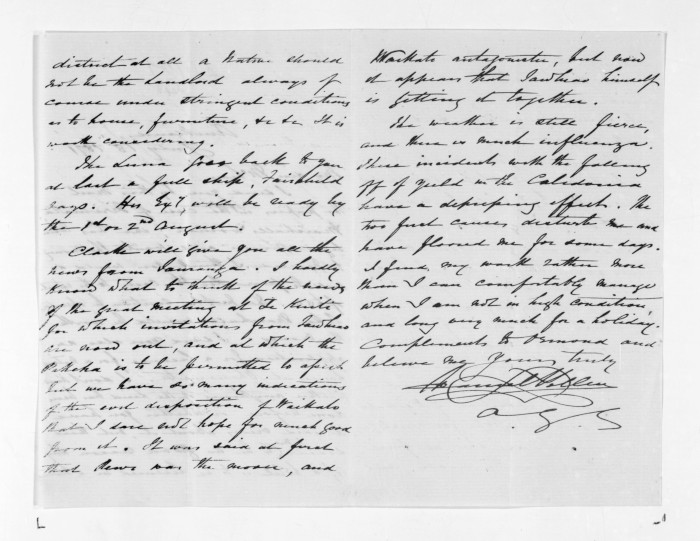 district at all a Native should
not be the Landlord always of
course under stringent conditions
as to house, furniture, &c &c. It is
worth considering.
The Luna goes back to you
at last a full ship, Fairchild
says. His Exy, will be ready by
the 1st or 2nd August.
Clarke will give you all the
news from Tauranga. I hardly
know what to think of the news
of the great meeting at Te Kuiti
for which invitations from Tawhiao
are now out, and at which the
Pakeha is to be permitted to speak
but we have so many indications
of the evil disposition of Waikato
that I dare not hope for much good
from it. It was said at first
that Rewi was the mover, and
Waikato antagonistic, but now
it appears that Tawhiao himself
is getting it together.
The weather is still fierce,
and there is much influenza.
These incidents with the falling
off of yield in the Caledonia
have a depressing effect. The
two first causes disturb me and
have floored me for some days.
I find, my work rather more
than I can comfortably manage
when I am not in high condition,
and long very much for a holiday.
Compliments to Ormond and
believe me Yours truly